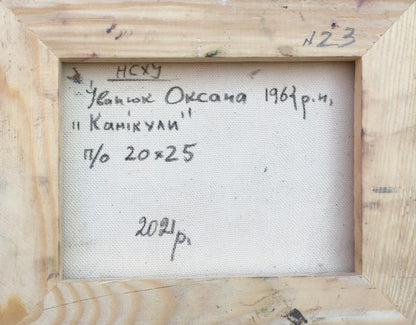 N23
НСХУ
Іванюк Оксана р.н,
"Канікули"
п/о 20×25
2021р.